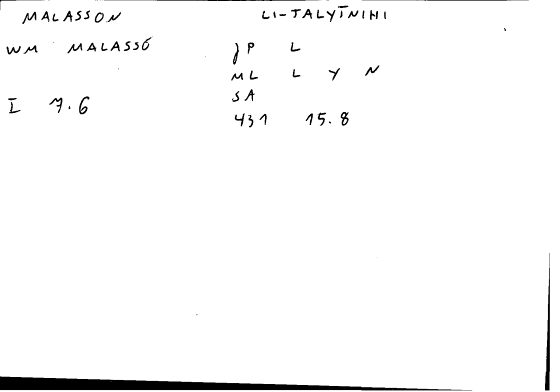 MALASSON LI-TALYĪNIHI
WM MALASSÓ JP L
ML L Y N
I 7.6 SA
431 15.8